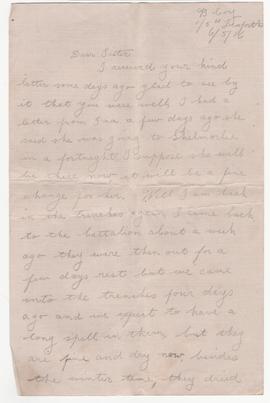 B Coy
1/5th Seaforth
6/5/16
Dear Sister
I received your kind
letter some days ago glad to see by
it that you were well I had a
letter from Ina a few days ago she
said she was going to Skelmorlie
in a fortnight I suppose she will
be there now it will be a fine
change for her. Well I am back
in the trenches again I came back
to the battalion about a week
ago they were then out for a
few days rest but we came
into the trenches four days
ago and we expect to have a
long spell in them but they
are fine and dry now besides
the winter time, they dried